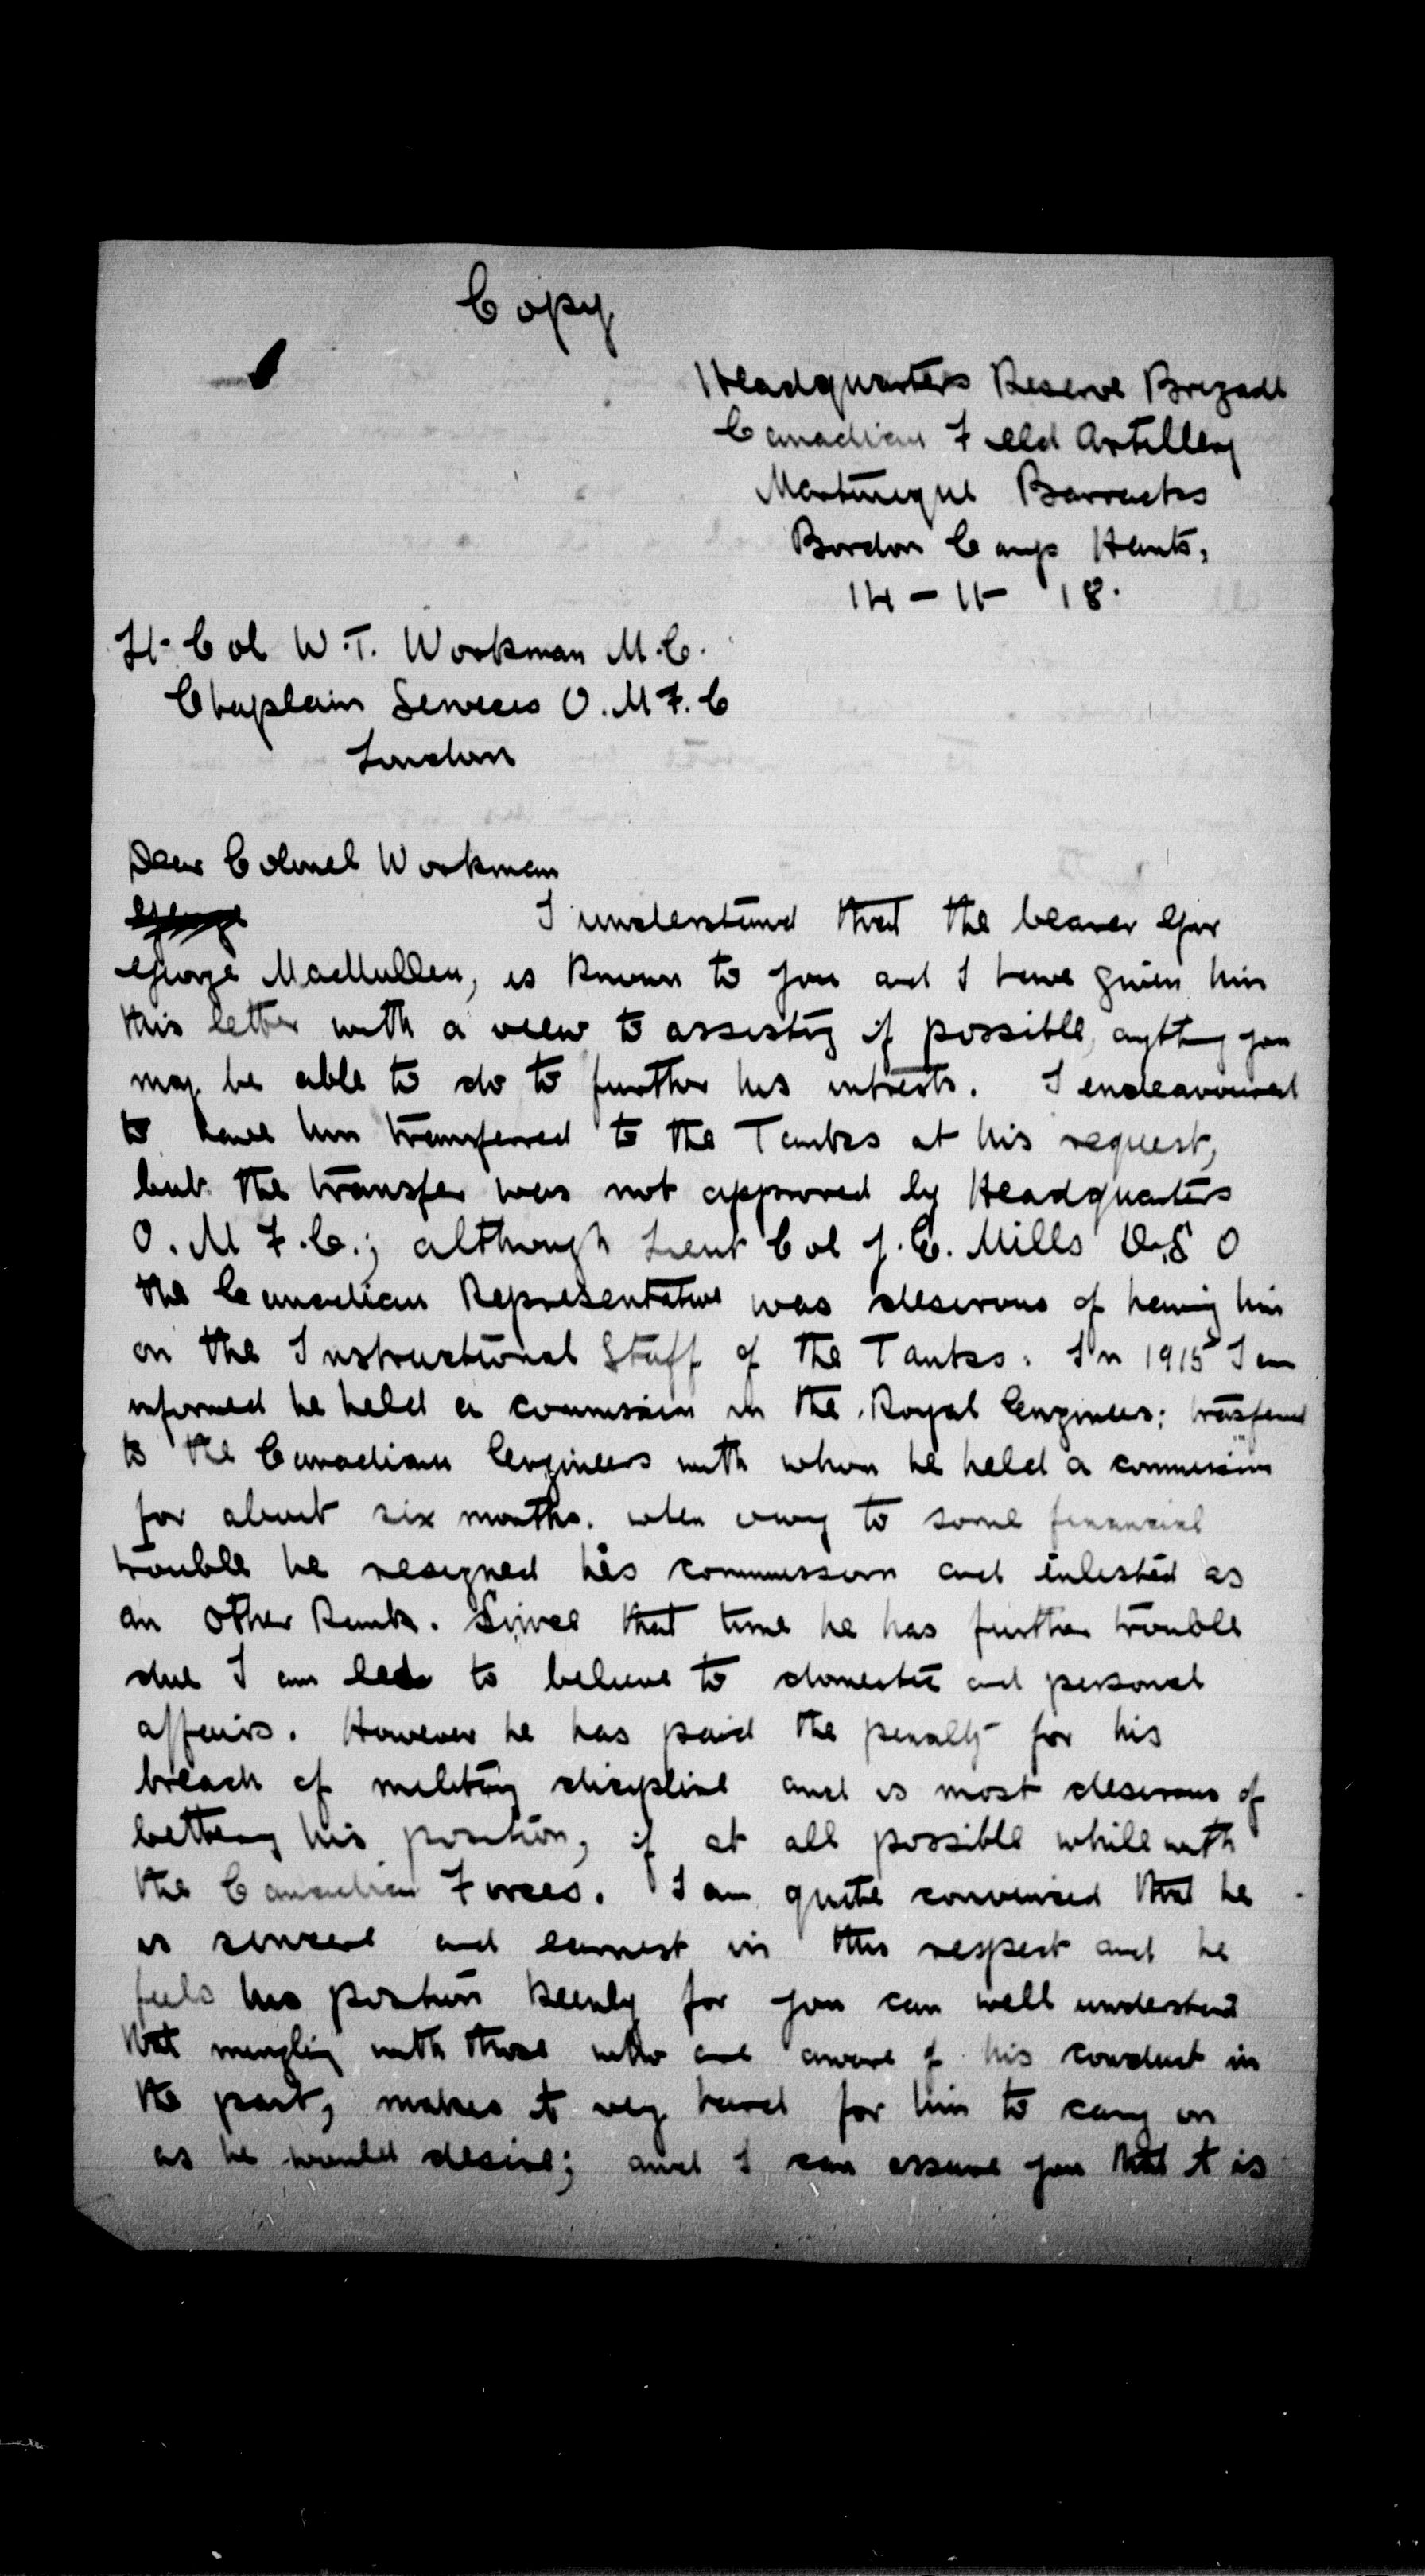 Copy
Headquarters Reserve Brigade
Canadian Field Artillery
Martinique Barracks
Bordon Camp Hants,
14 - 11 - 18.
Lt. Col W.T. Workman M.C.
Chaplain Services O.M.F.C
London
Dear Colonel Workman
I understand that the bearer Gnr
George MacMullen, is known to you and I have given him
this letter with a view to assistig if possible, anythig you
may be able to do to further his intrests. I endeavoured
to have him transferred to the Tanks at his request,
but the transfer was not approved by Headquarters
O.M.F.C.; although Lieut Col J.E. Mills D.S.O
the Canadian Representative was desirous of having him
on the Instructional Staff of the Tanks. In 1915 I am
informed he held a commission in the Royal Engineers; trasfered
to the Canadian Engineers with whom he held a commission
for about six months. when owing to some financial
trouble he resigned his commission and enlisted as
an Other Rank. Since that time he has further trouble
due I am led to believe to domestic and personal
affairs. However he has paid the penalty for his
breach of military discipline and is most desirous of
bettering his position, if at all possible while with
the Canadian Forces. I am quite convinced that he
is sincere and earnest in this respect and he
feels his position keenly for you can well understand
that mingling with those who are aware of his conduct in
the past, makes it very hard for him to carry on
as he would desire; and I can assure you that it is